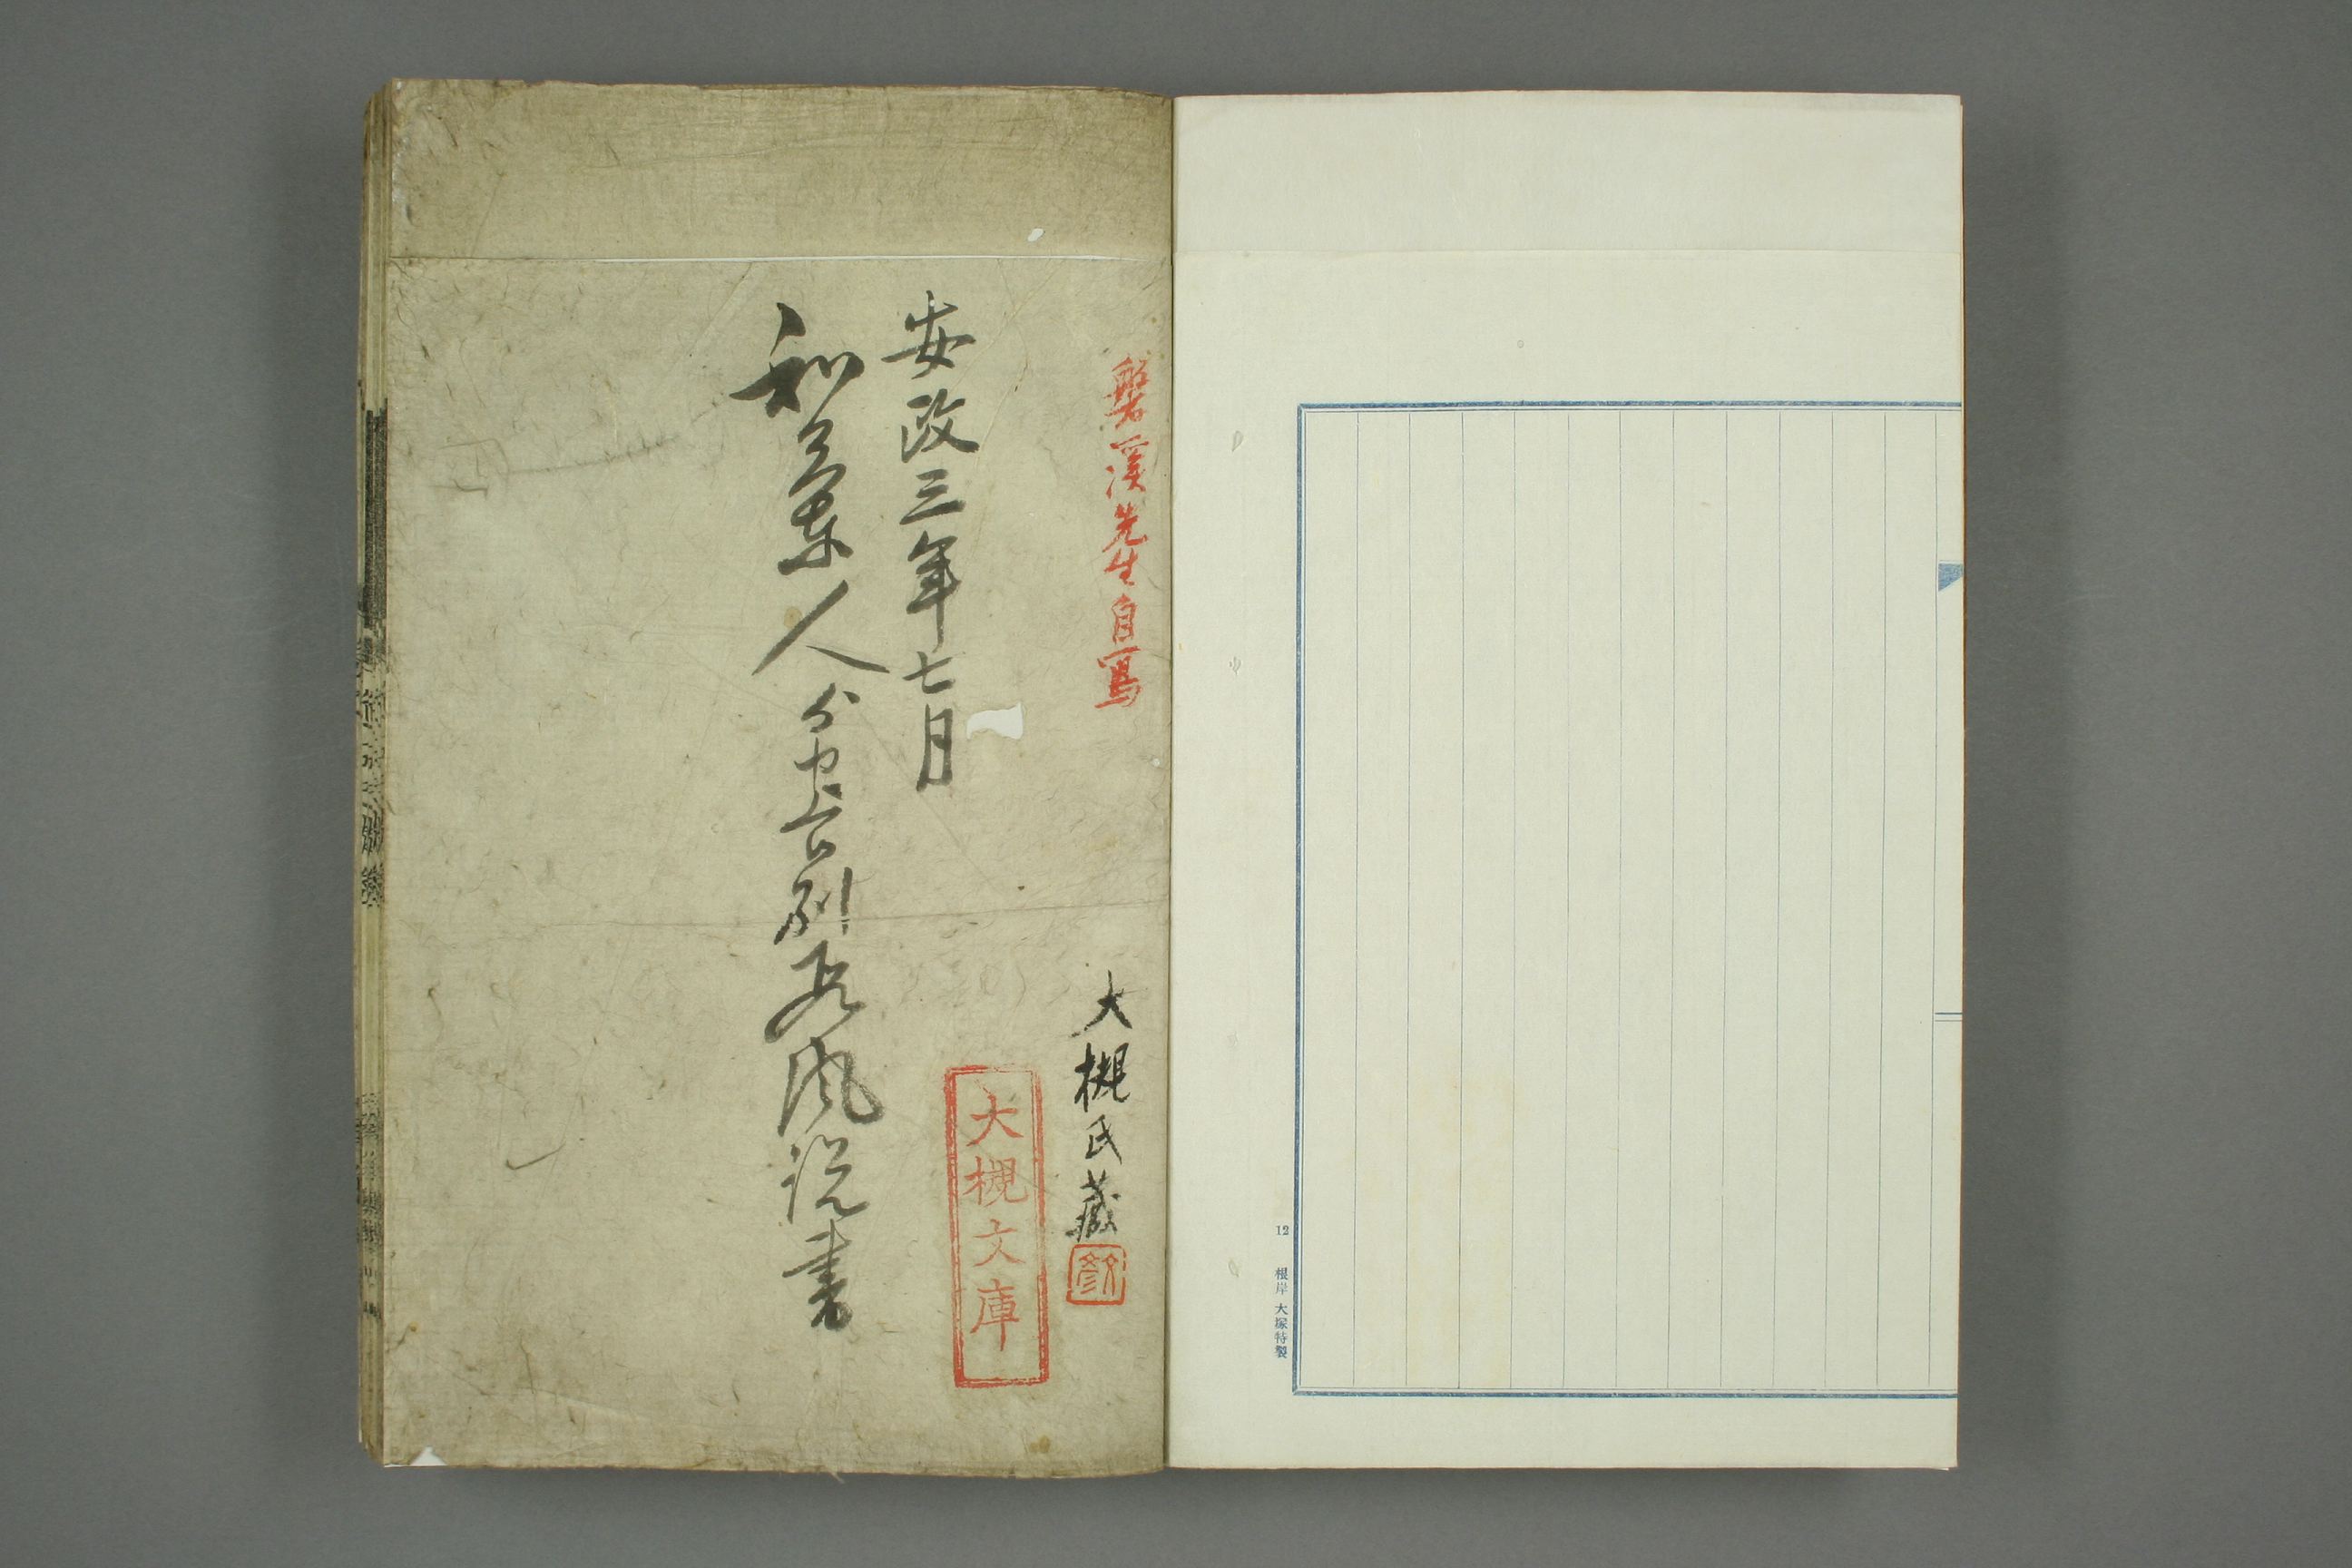 12 根岸 大塚特製
磐溪先生自寫
大槻氏藏
大槻文庫
安政三年七月
和蘭人 別段風説書